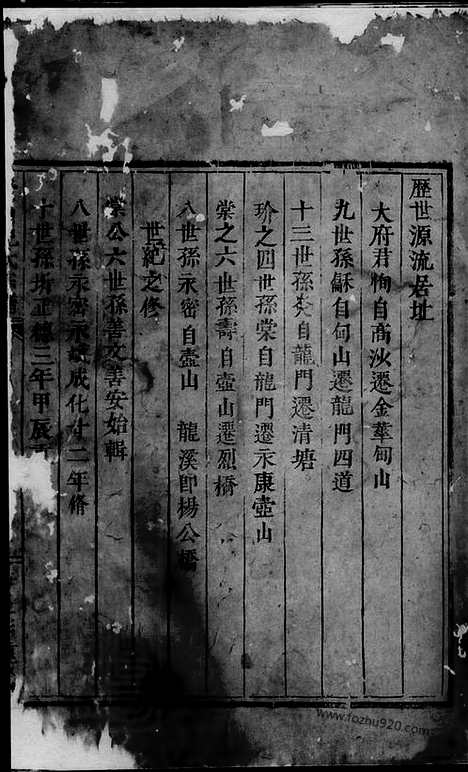 歷世源流居址
大府君恂自高沙遷金華甸山
九世孫穌自甸山遷龍門四道
十三世孫炎自龍門遷清塘
玠之四世孫棠自龍門遷永康壺山
棠之六世孫壽自壺山遷烈橋
八世孫永密自壺山 龍溪即楊公橋
世紀之修
棠公六世孫善文善安始輯
八世孫永密永 成化廿二年脩
十世孫 正德三年甲辰
www.fozhu920.com